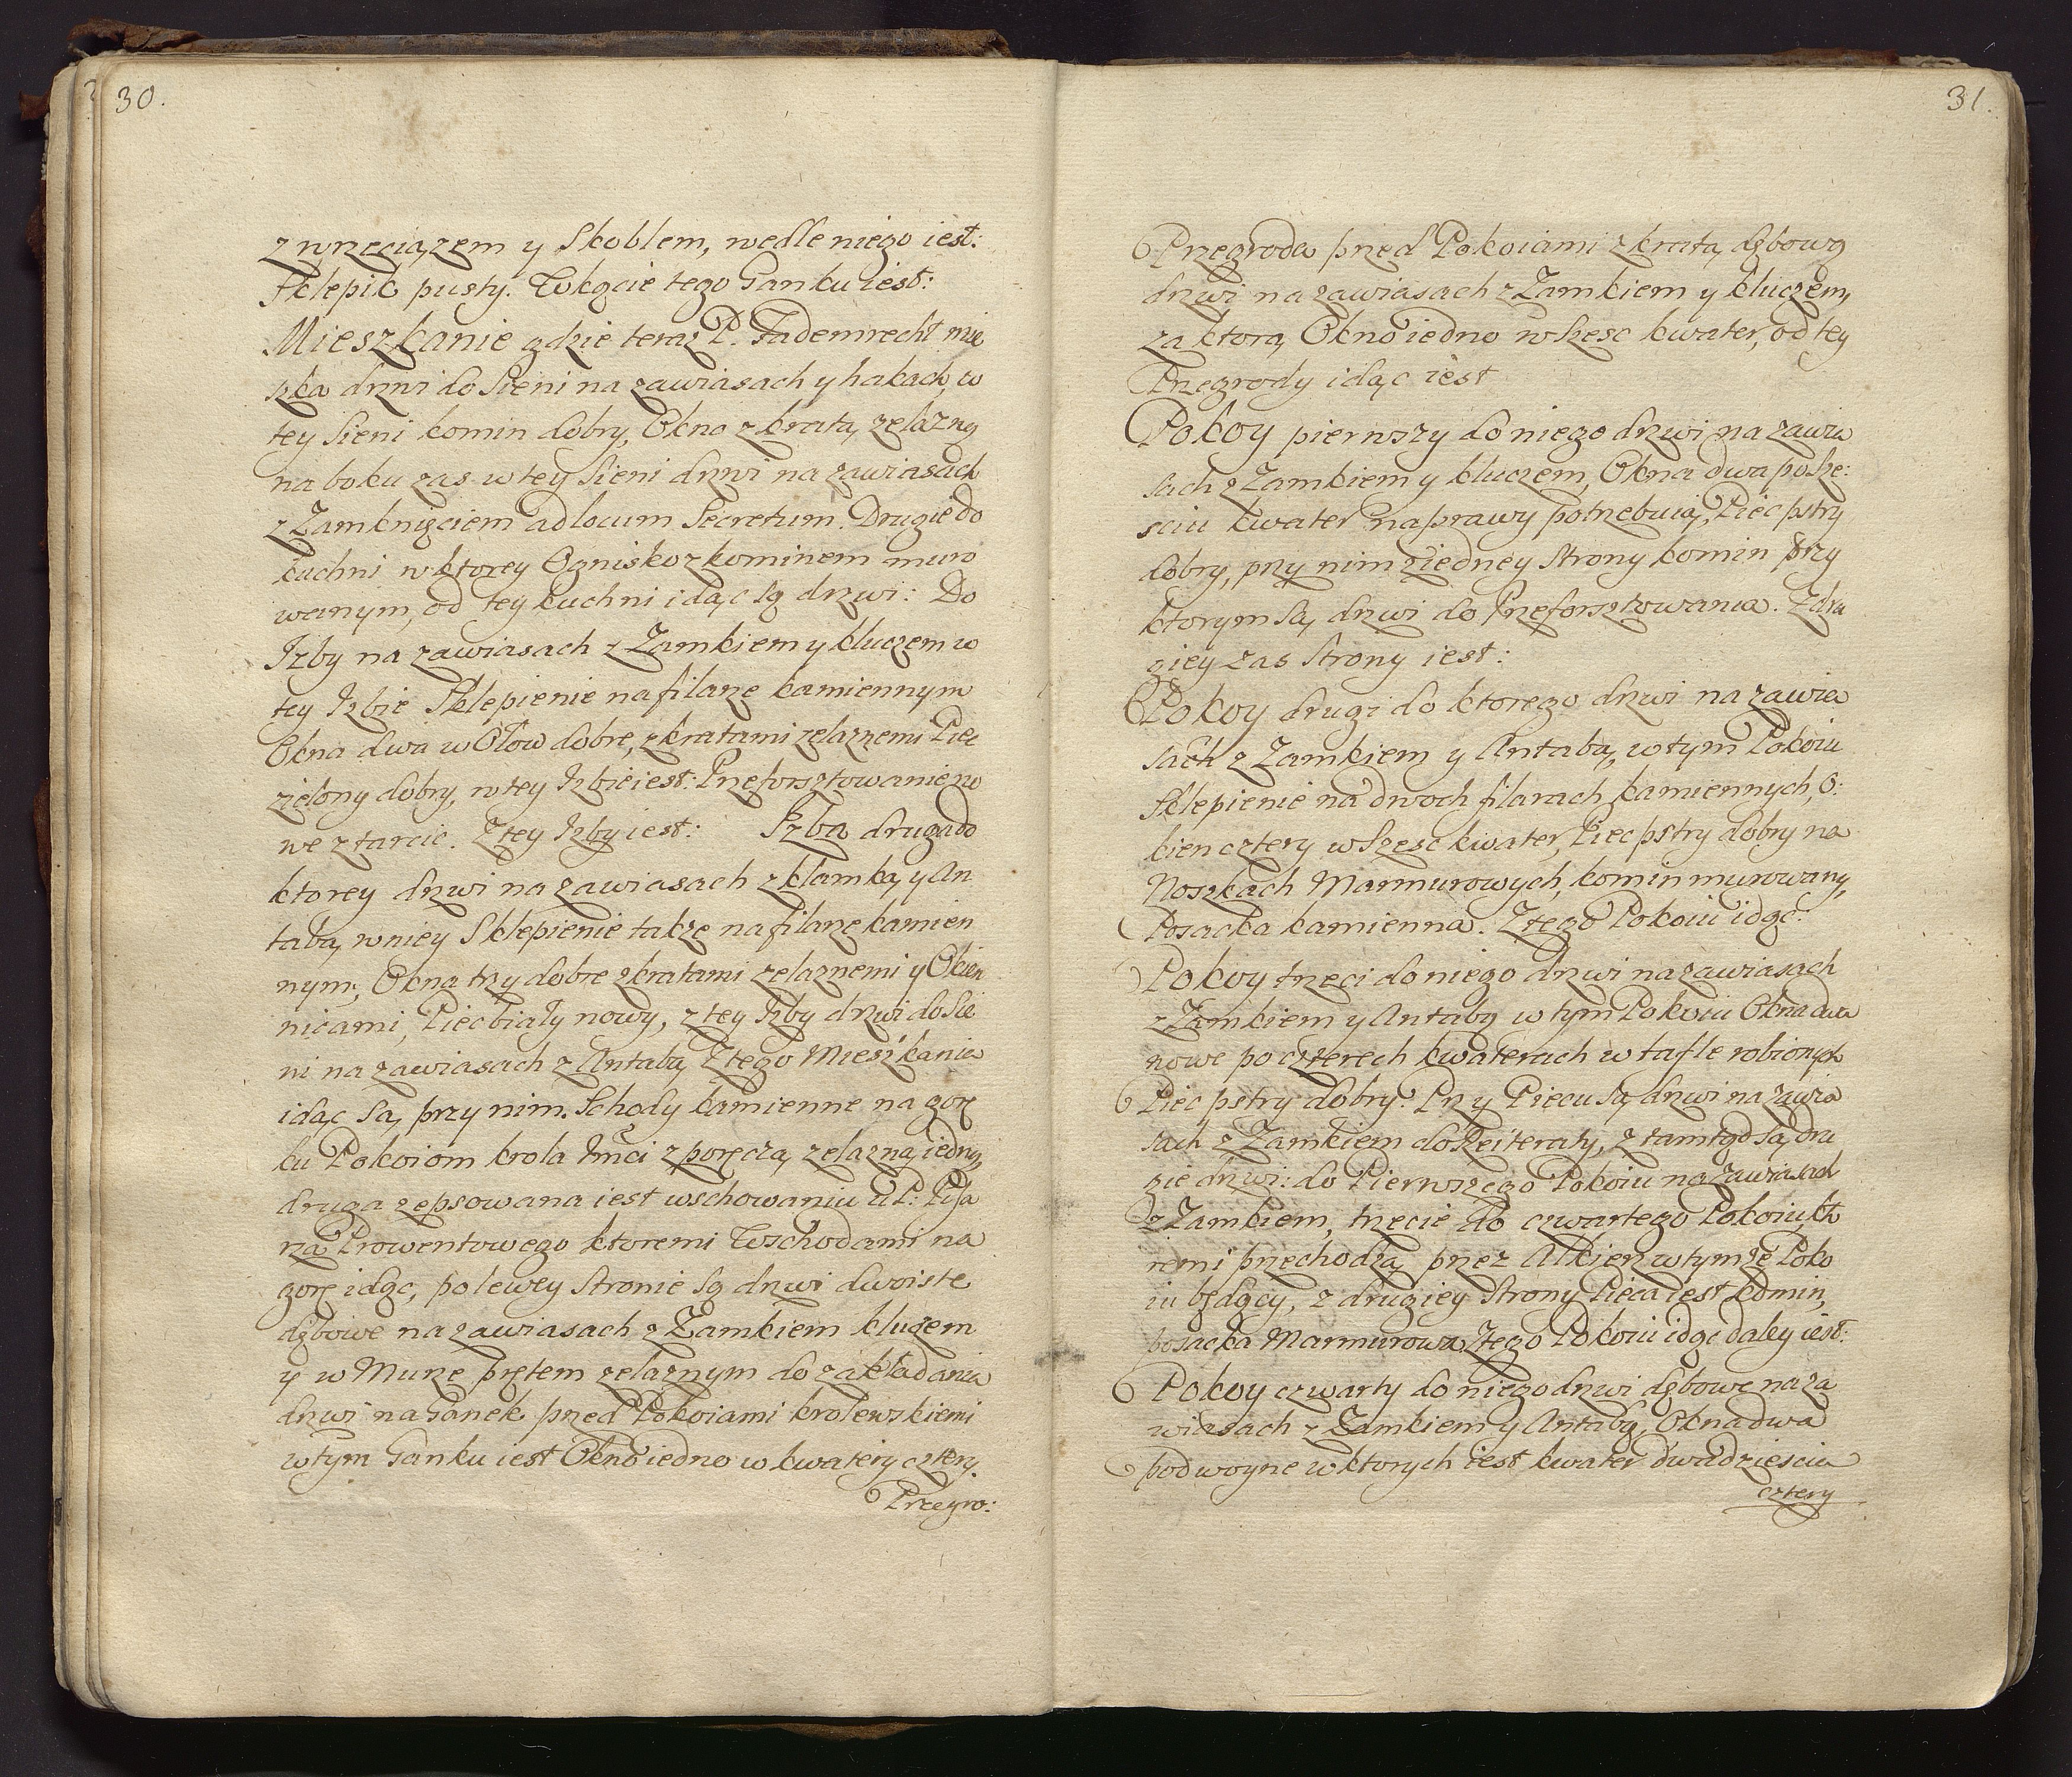 30.
z wrzeciązem y Skoblem, wedle niego iest:
Sklepik pusty. W kącie tego Ganku iest:
Mieszkanie gdzie teraz P. Fademrecht mie
szka drzwi do Sieni na zawiasach y hakach, w
tey Sieni komin dobry, Okno z kratą zelazną
na boku zas w tey Sieni drzwi na zawiasach
z Zamknięciem ad locum Secretum. Drugie do
kuchni w ktorey Ognisko z kominem muro
wanym, od tey kuchni idąc są drzwi: Do
Izby na zawiasach z Zamkiem y kluczem w
tey Izbie Sklepienie na filarze kamiennym
Okna dwa w Ołow dobre, z kratami zelaznemi Piec
zielony dobry, w tey Izbie iest: Przeforsztowanie no
we z tarcic. Z tey Izby iest: Izba druga do
ktorey drzwi na zawiasach z klamką y An
tabą, w niey Sklepienie także na filarze kamien
nym, Okna trzy dobre z kratami zelaznemi y Okien
nicami, Piec biały nowy, z tey Izby drzwi do Sie
ni na zawiasach z Antabą Z tego Mieszkania
idąc są przy nim. Schody kamienne na gorę
ku Pokoiom krola Jmci z poręczą zelazną iedną,
druga zepsowana iest w schowaniu u P: Pisa
rza Prowentowego ktoremi Wschodami na
gorę idąc, po lewey Stronie są drzwi dwoiste
dębowe na zawiasach z Zamkiem kluczem
y w Murze prętem zelaznym do zakładania
drzwi na Ganek przed Pokoiami krolewskiemi
w tym Ganku iest Okno iedno w kwatery cztery.
Przegro:
31.
Przegroda przed Pokoiami z kratą dębową
drzwi na zawiasach z Zamkiem y kluczem,
za ktorą Okno iedno w Szesc kwater, od tey
Przegrody idąc iest
Pokoy pierwszy do niego drzwi na zawia
sach z Zamkiem y kluczem, Okna dwa po sze:
sciu kwater naprawy potrzebuią, Piec pstry
dobry, przy nim z iedney Strony komin przy
ktorym są drzwi do Przeforsztowania. Z dru
giey zas Strony iest:
Pokoy drugi do ktorego drzwi na zawia
sach z Zamkiem y Antabą, w tym Pokoiu
Sklepienie na dwoch filarach kamiennych, O:
kien cztery w Szesc kwater, Piec pstry dobry na
Noszkach Marmurowych, komin murowany,
Posacka kamienna. Z tego Pokoiu idąc:
Pokoy trzeci do niego drzwi na zawiasach
z Zamkiem y Antabą w tym Pokoiu Okna dwa
nowe po czterech kwaterach w tafle robionych
Piec pstry dobry. Przy Piecu są drzwi na zawia
sach z Zamkiem do Reiteraty, z tamtąd są dru
gie drzwi: do Pierwszego Pokoiu na zawiasach
z Zamkiem, trzecie do czwartego Pokoiu, kto
remi przechodzą przez Alkierz w tymże Poko
iu będący, z drugiey Strony Pieca iest komin,
posacka Marmurowa. Z tego Pokoiu idąc daley iest:
Pokoy czwarty do niego drzwi dębowe na za
wiasach z Zamkiem y Antabą, Okna dwa
podwoyne w ktorych iest kwater dwadziescia
cztery